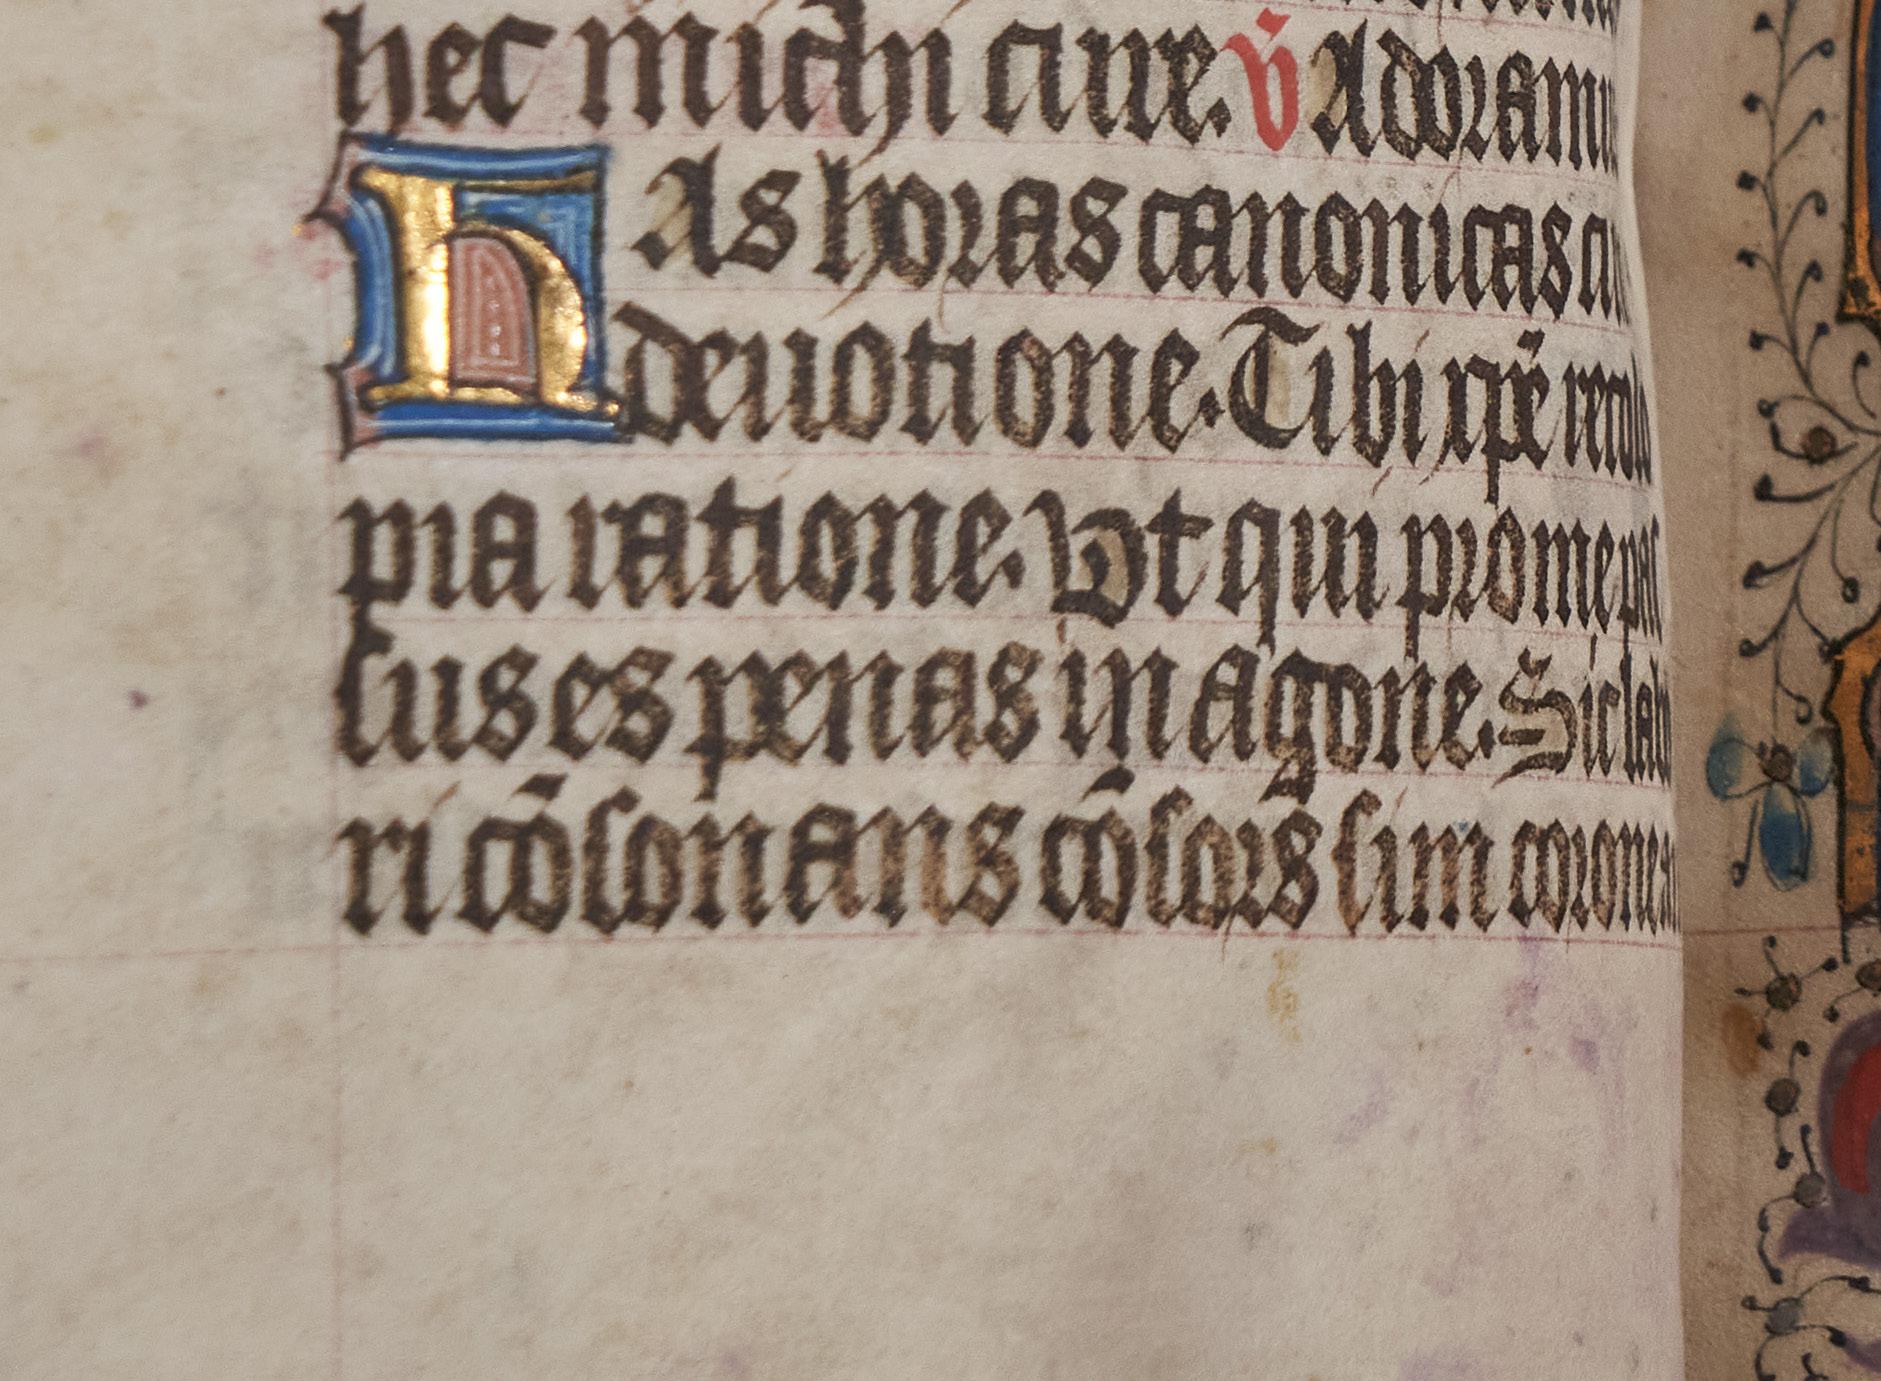 hec michi cure. v̄ Adoramus
Has horas canonicas cu
deuotione. Tibi xp̄e recolo
pia ratione. Vt qui pro me pas
sus es penas in agone. Sic labo
ri cōsonans cōsors sim corone